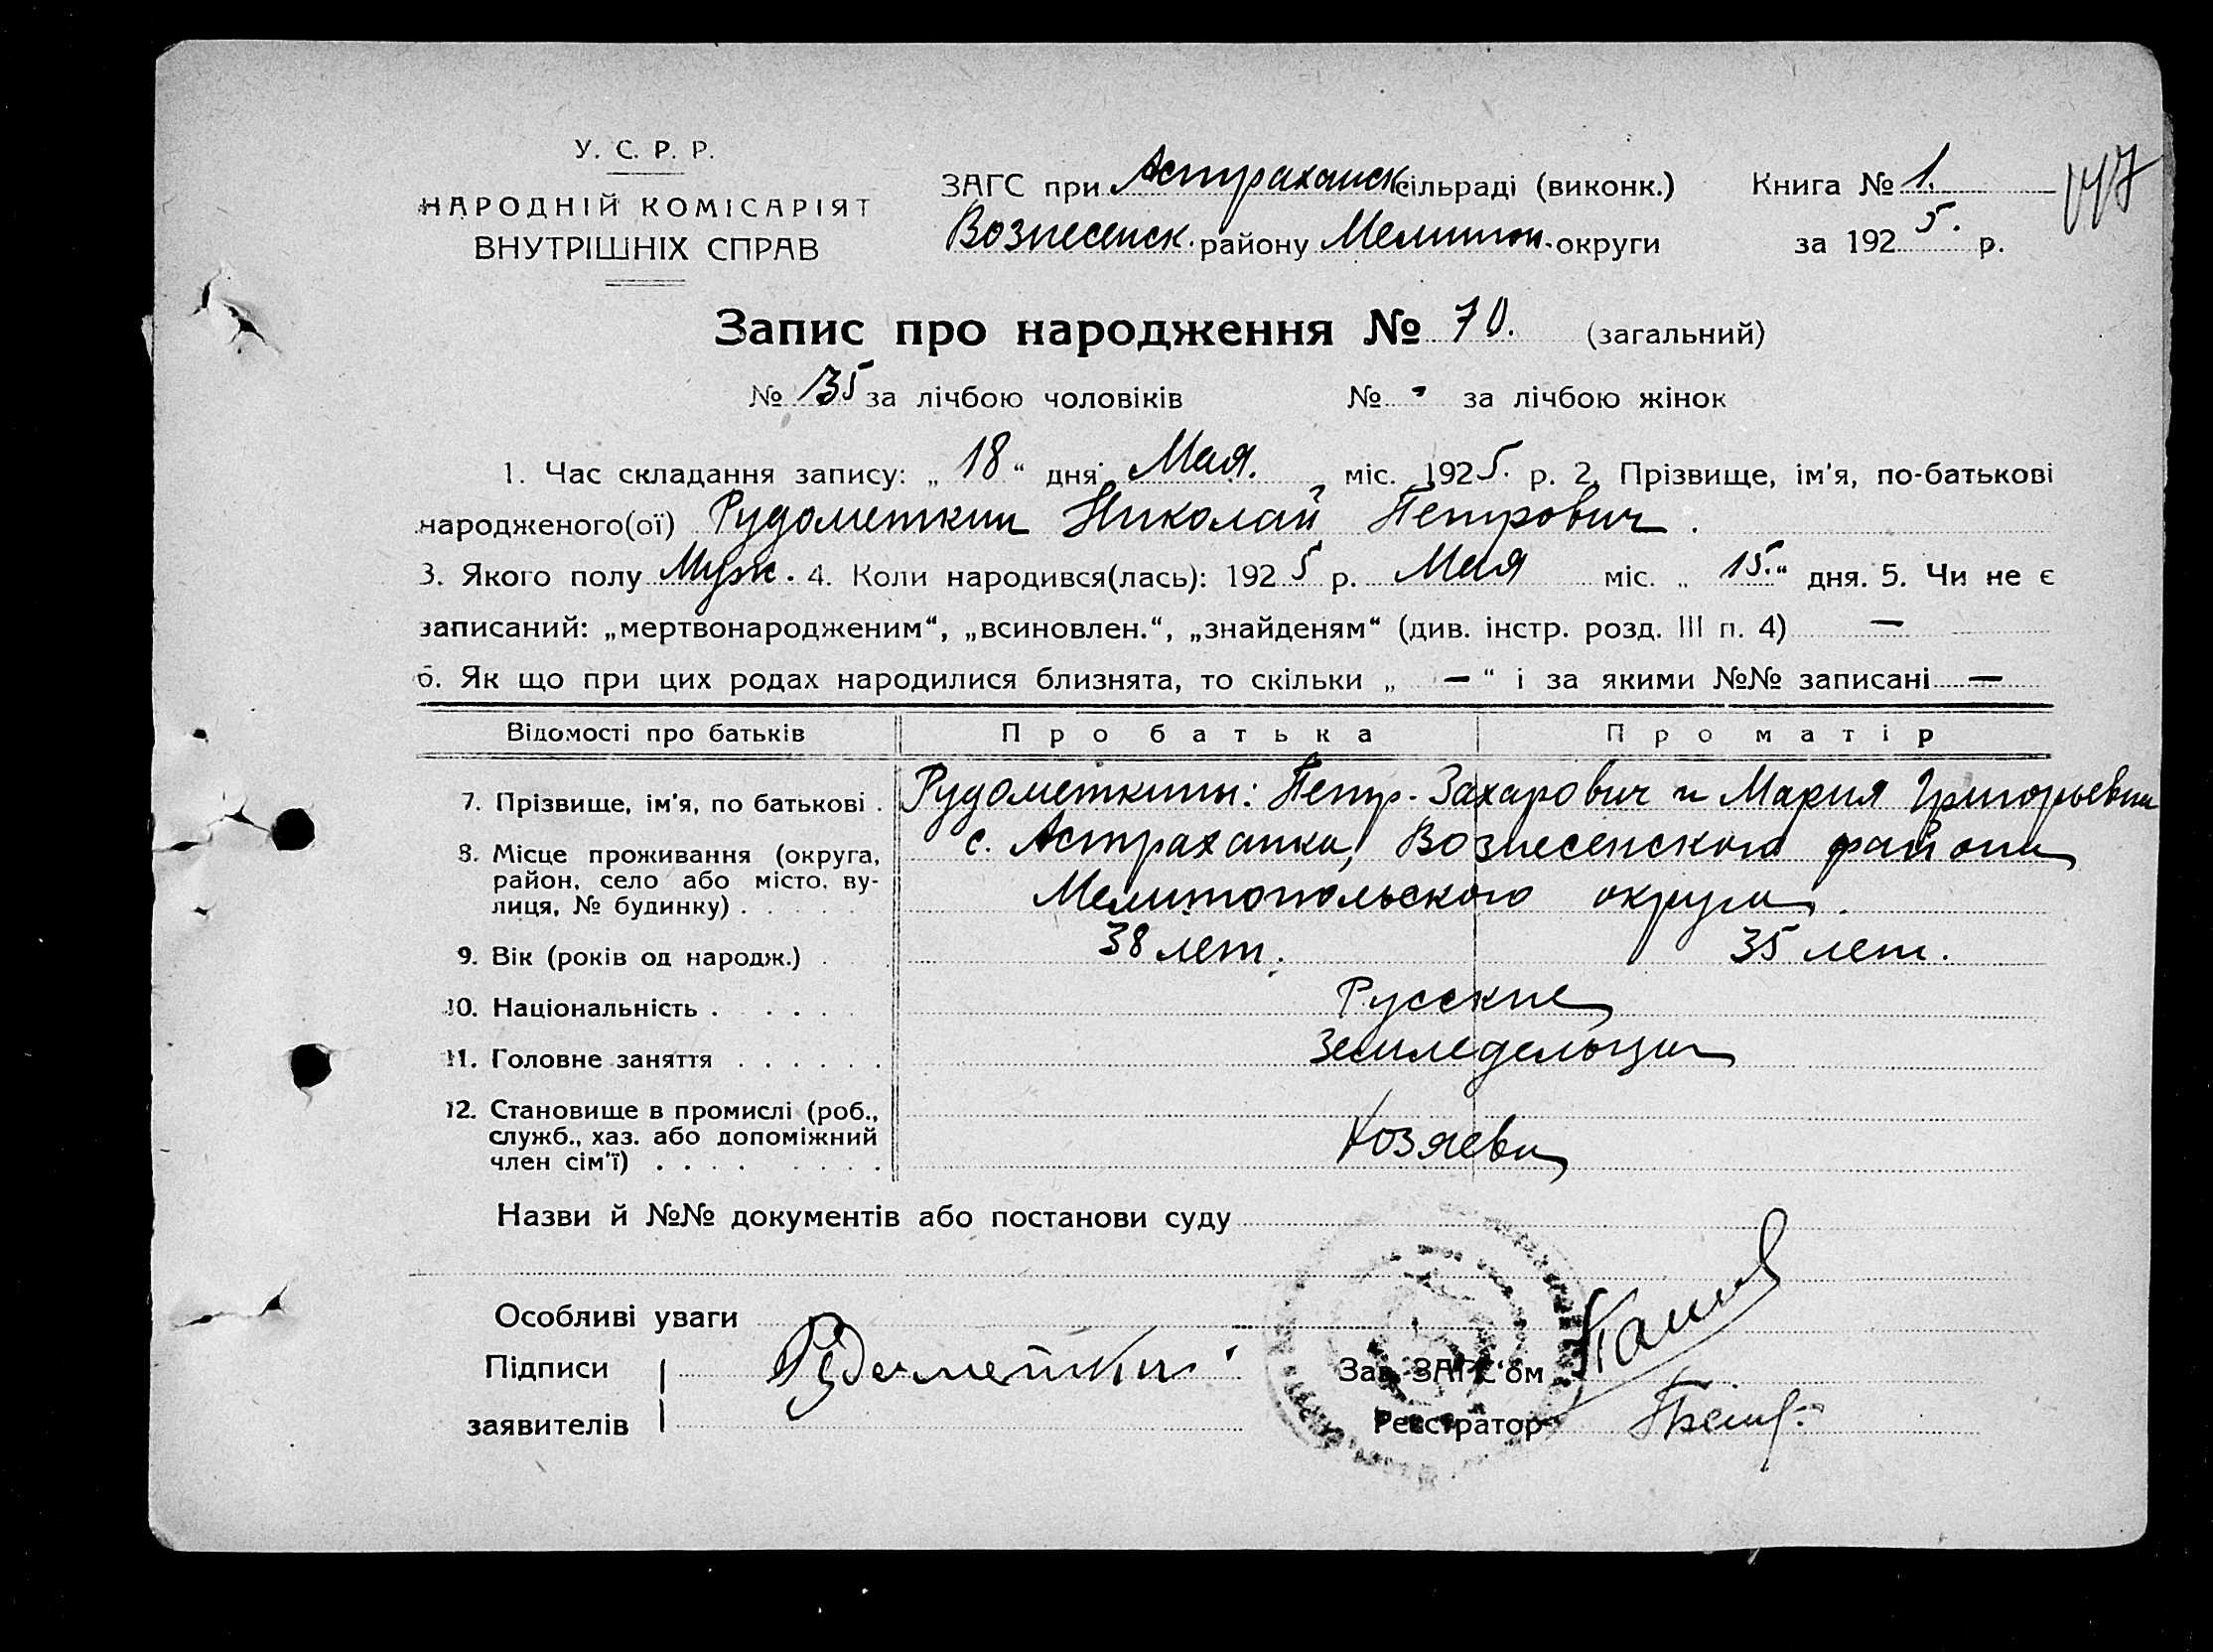 У. С. Р. Р.
НАРОДНІЙ КОМІСАРІЯТ
ВНУТРІШНІХ СПРАВ
ЗАГС при Астраханск сільраді (виконк.)
Вознесенск. району Мелитоп. округи
Книга № 1.
за 1925. р.
147
Запис про народження № 70. (загальний)
№ 35 за лічбою чоловіків № - за лічбою жінок
1. Час складання запису: „ 18 “ дня Мая. міс. 1925. р. 2. Прізвище, ім'я, по-батькові
народженого(ої) Рудометкин Николай Петрович.
3. Якого полу Муж. 4. Коли народився(лась): 1925 р. Мая міс. „ 15.“ дня. 5. Чи не є
записаний: „мертвонародженим“, „всиновлен.“, „знайденям“ (див. інстр. розд. III п. 4) —
6. Як що при цих родах народилися близнята, то скільки „ — “ і за якими №№ записані —
Відомості про батьків Про батька Про матір
7. Прізвище, ім'я, по батькові . Рудометкины: Петр. Захарович и Мария Григорьевна
8. Місце проживання (округа, с. Астраханка, Вознесенского района
район, село або місто, ву-
лиця, № будинку) . . . . . Мелитопольского округа.
9. Вік (років од народж.) . 38 лет. 35 лет.
10. Національність . . . . . Русские
11. Головне заняття . . . . . . Земледельцы
12. Становище в промислі (роб.,
служб., хаз. або допоміжний Хозяева
член сім'ї) . . . . . . . .
Назви й №№ документів або постанови суду
Особливі уваги
Підписи Рудометкин Зав. ЗАГС'ом
заявителів Реєстратор